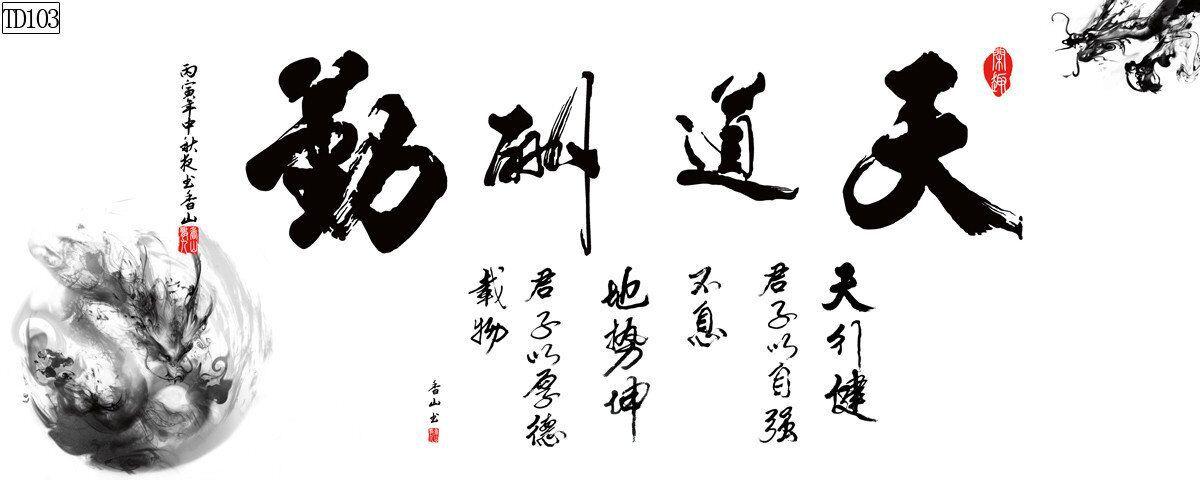 TD103
天道酬勤
天行健
君子以自强
不息
地势坤
君子以厚德
载物
香山书
丙寅年中秋夜书香山